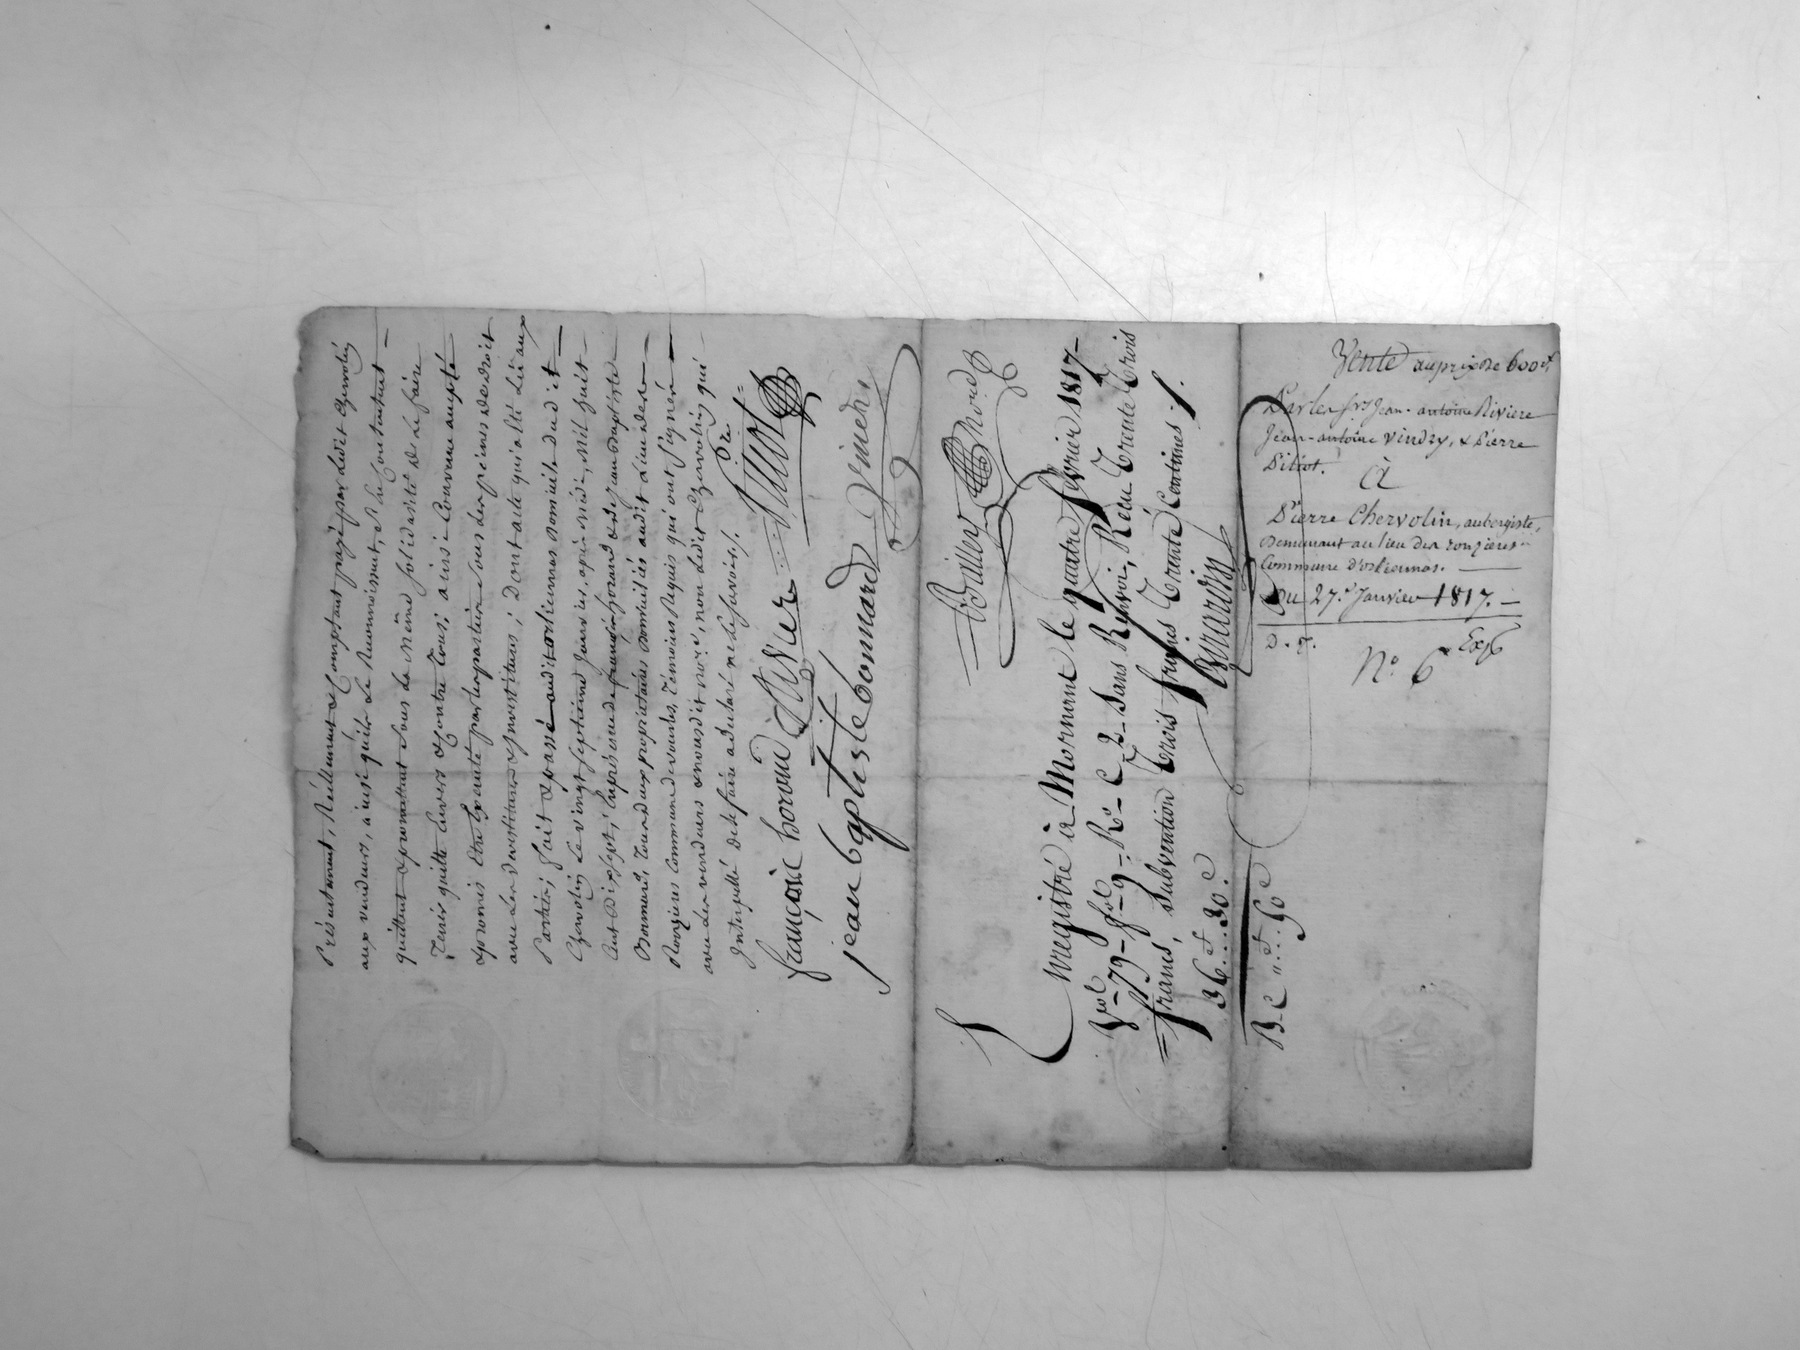 Présentement, Réellement & Comptant payé par ledit Chervolin
aux vendeurs, ainsi qu'ils le Reconnoissent, et se Contentent —
quittent & promettent sous la même solidarité de le faire
Tenir quitte Envers & Contre Tous; ainsi Convenu accepté
& promis être Exécuté par les parties sous les peines de droit
avec les devestitures & Investitures; Dont acte qui a été Lû aux
Parties; fait & passé audit orliennas domicile dudit —
Chervolin Le vingt septième Janvier, après midi, Mil huit —
Cent Dix sept; En présence de françois horand & de Jean Baptiste
Bonnard, Tous deux propriétaires domiciliés audit Lieu des —
Rozières Commune de Témoins Requis qui ont signé
avec Les vendeurs & nousdit no.re, non Ledit Chervolin qui —
Interpellé de le faire a déclaré ne le savoir ./.
françois horand Rivier Pitiot
jean baptiste bonnard Vindry
Enregistré à Mornant le quatre fevrier 1817 —
Vol — 79 — fol — 9 — Ro — C 2 — Sans Renvoi, Reçu Trente Trois
francs, subvention Trois francs Trente Centimes ./.
36.f..30.c
Girardin
Vente au prix de 600f.
Par les srs Jean-antoine Riviere
Jean-antoine Vindry, & Pierre
Pitiot.
à
Pierre Chervolin, aubergiste,
Demeurant au lieu des rozieres
Commune d'orliennas.
Du 27.e Janvier 1817. —
D. T.
No. 6 Exp